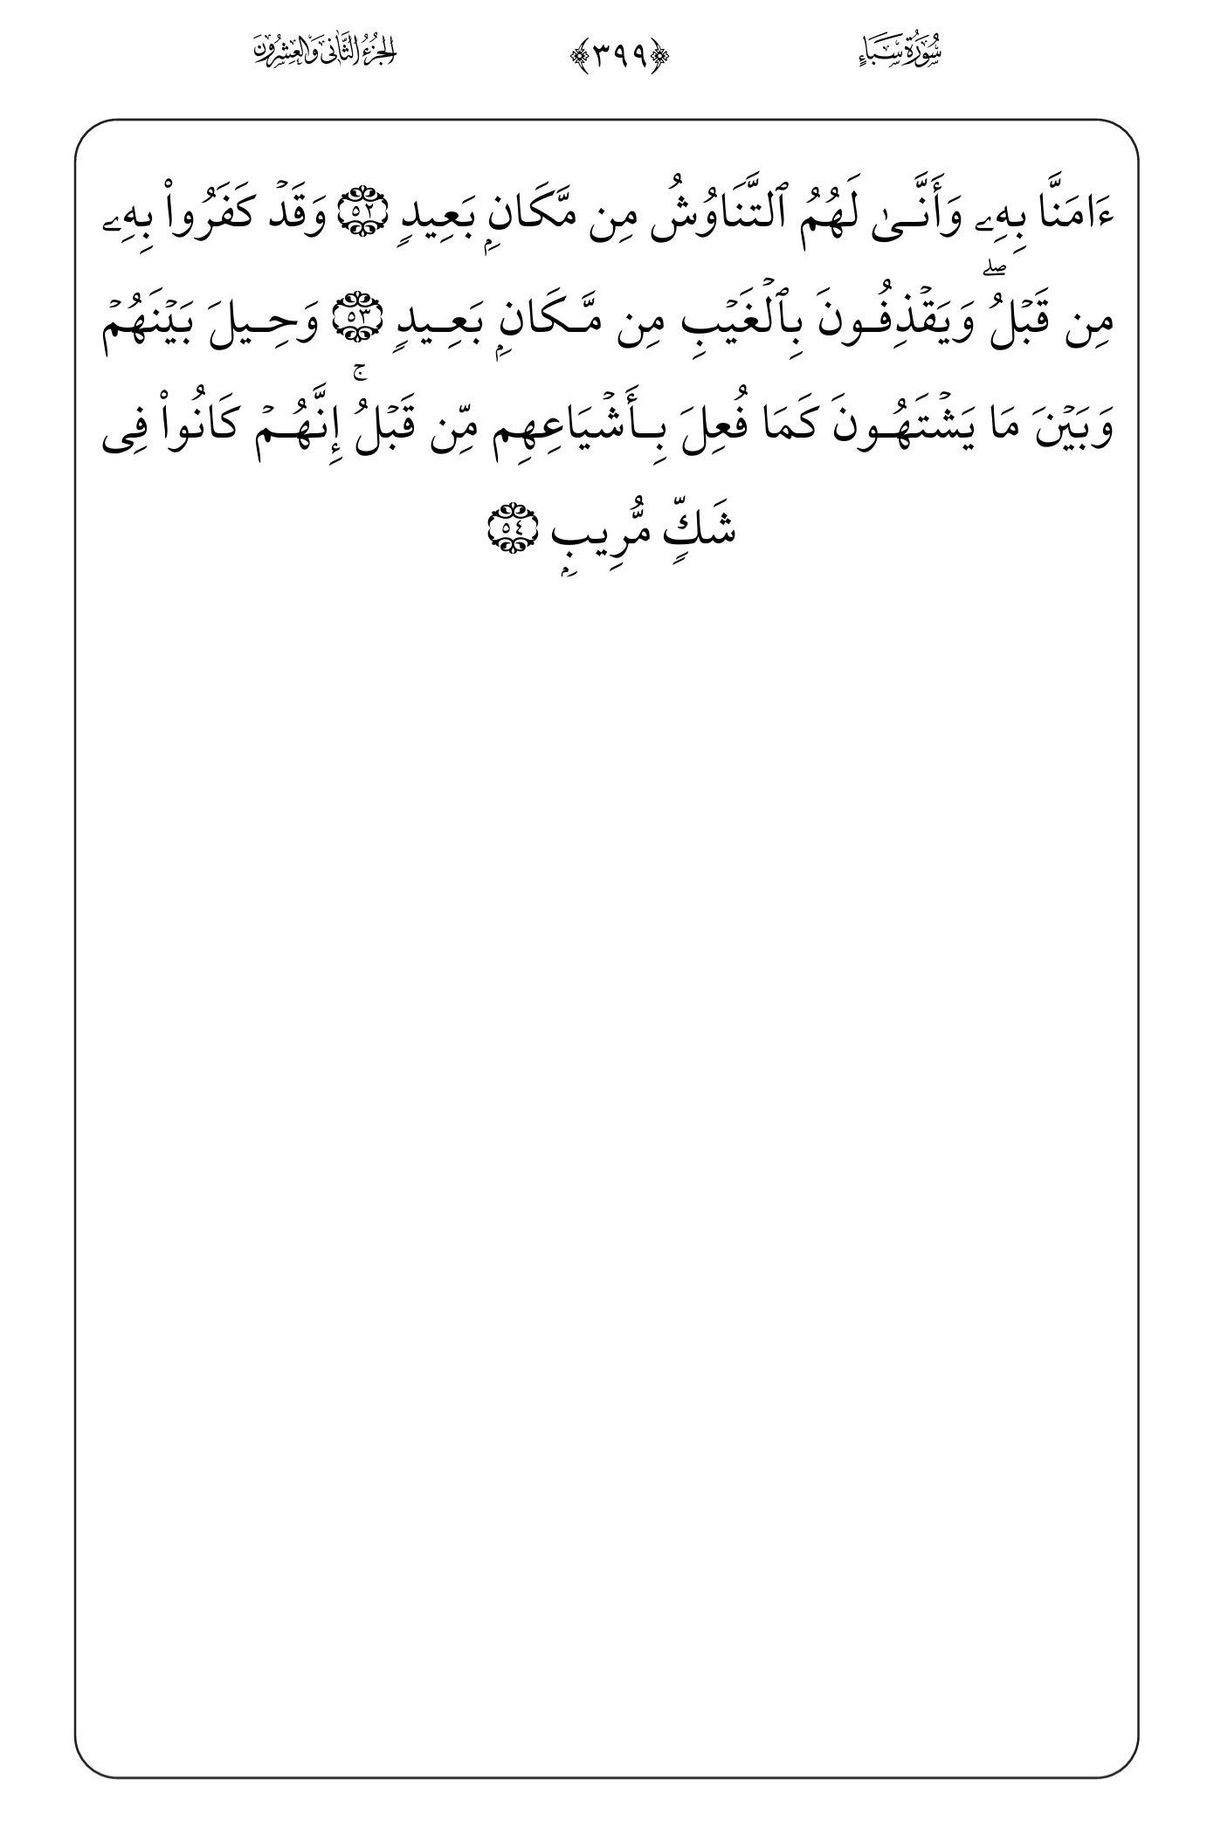 سُورَةُ سَبَإٍ ﴿٣٩٩﴾ الجُزْءُ الثَّانِى وَالعِشْرُونَ
ءَامَنَّا بِهِۦ وَأَنَّىٰ لَهُمُ ٱلتَّنَاوُشُ مِن مَّكَانِۭ بَعِيدٖ ٥٢ وَقَدۡ كَفَرُواْ بِهِۦ
مِن قَبۡلُۖ وَيَقۡذِفُونَ بِٱلۡغَيۡبِ مِن مَّكَانِۭ بَعِيدٖ ٥٣ وَحِيلَ بَيۡنَهُمۡ
وَبَيۡنَ مَا يَشۡتَهُونَ كَمَا فُعِلَ بِأَشۡيَاعِهِم مِّن قَبۡلُۚ إِنَّهُمۡ كَانُواْ فِى
شَكّٖ مُّرِيبِۭ ٥٤